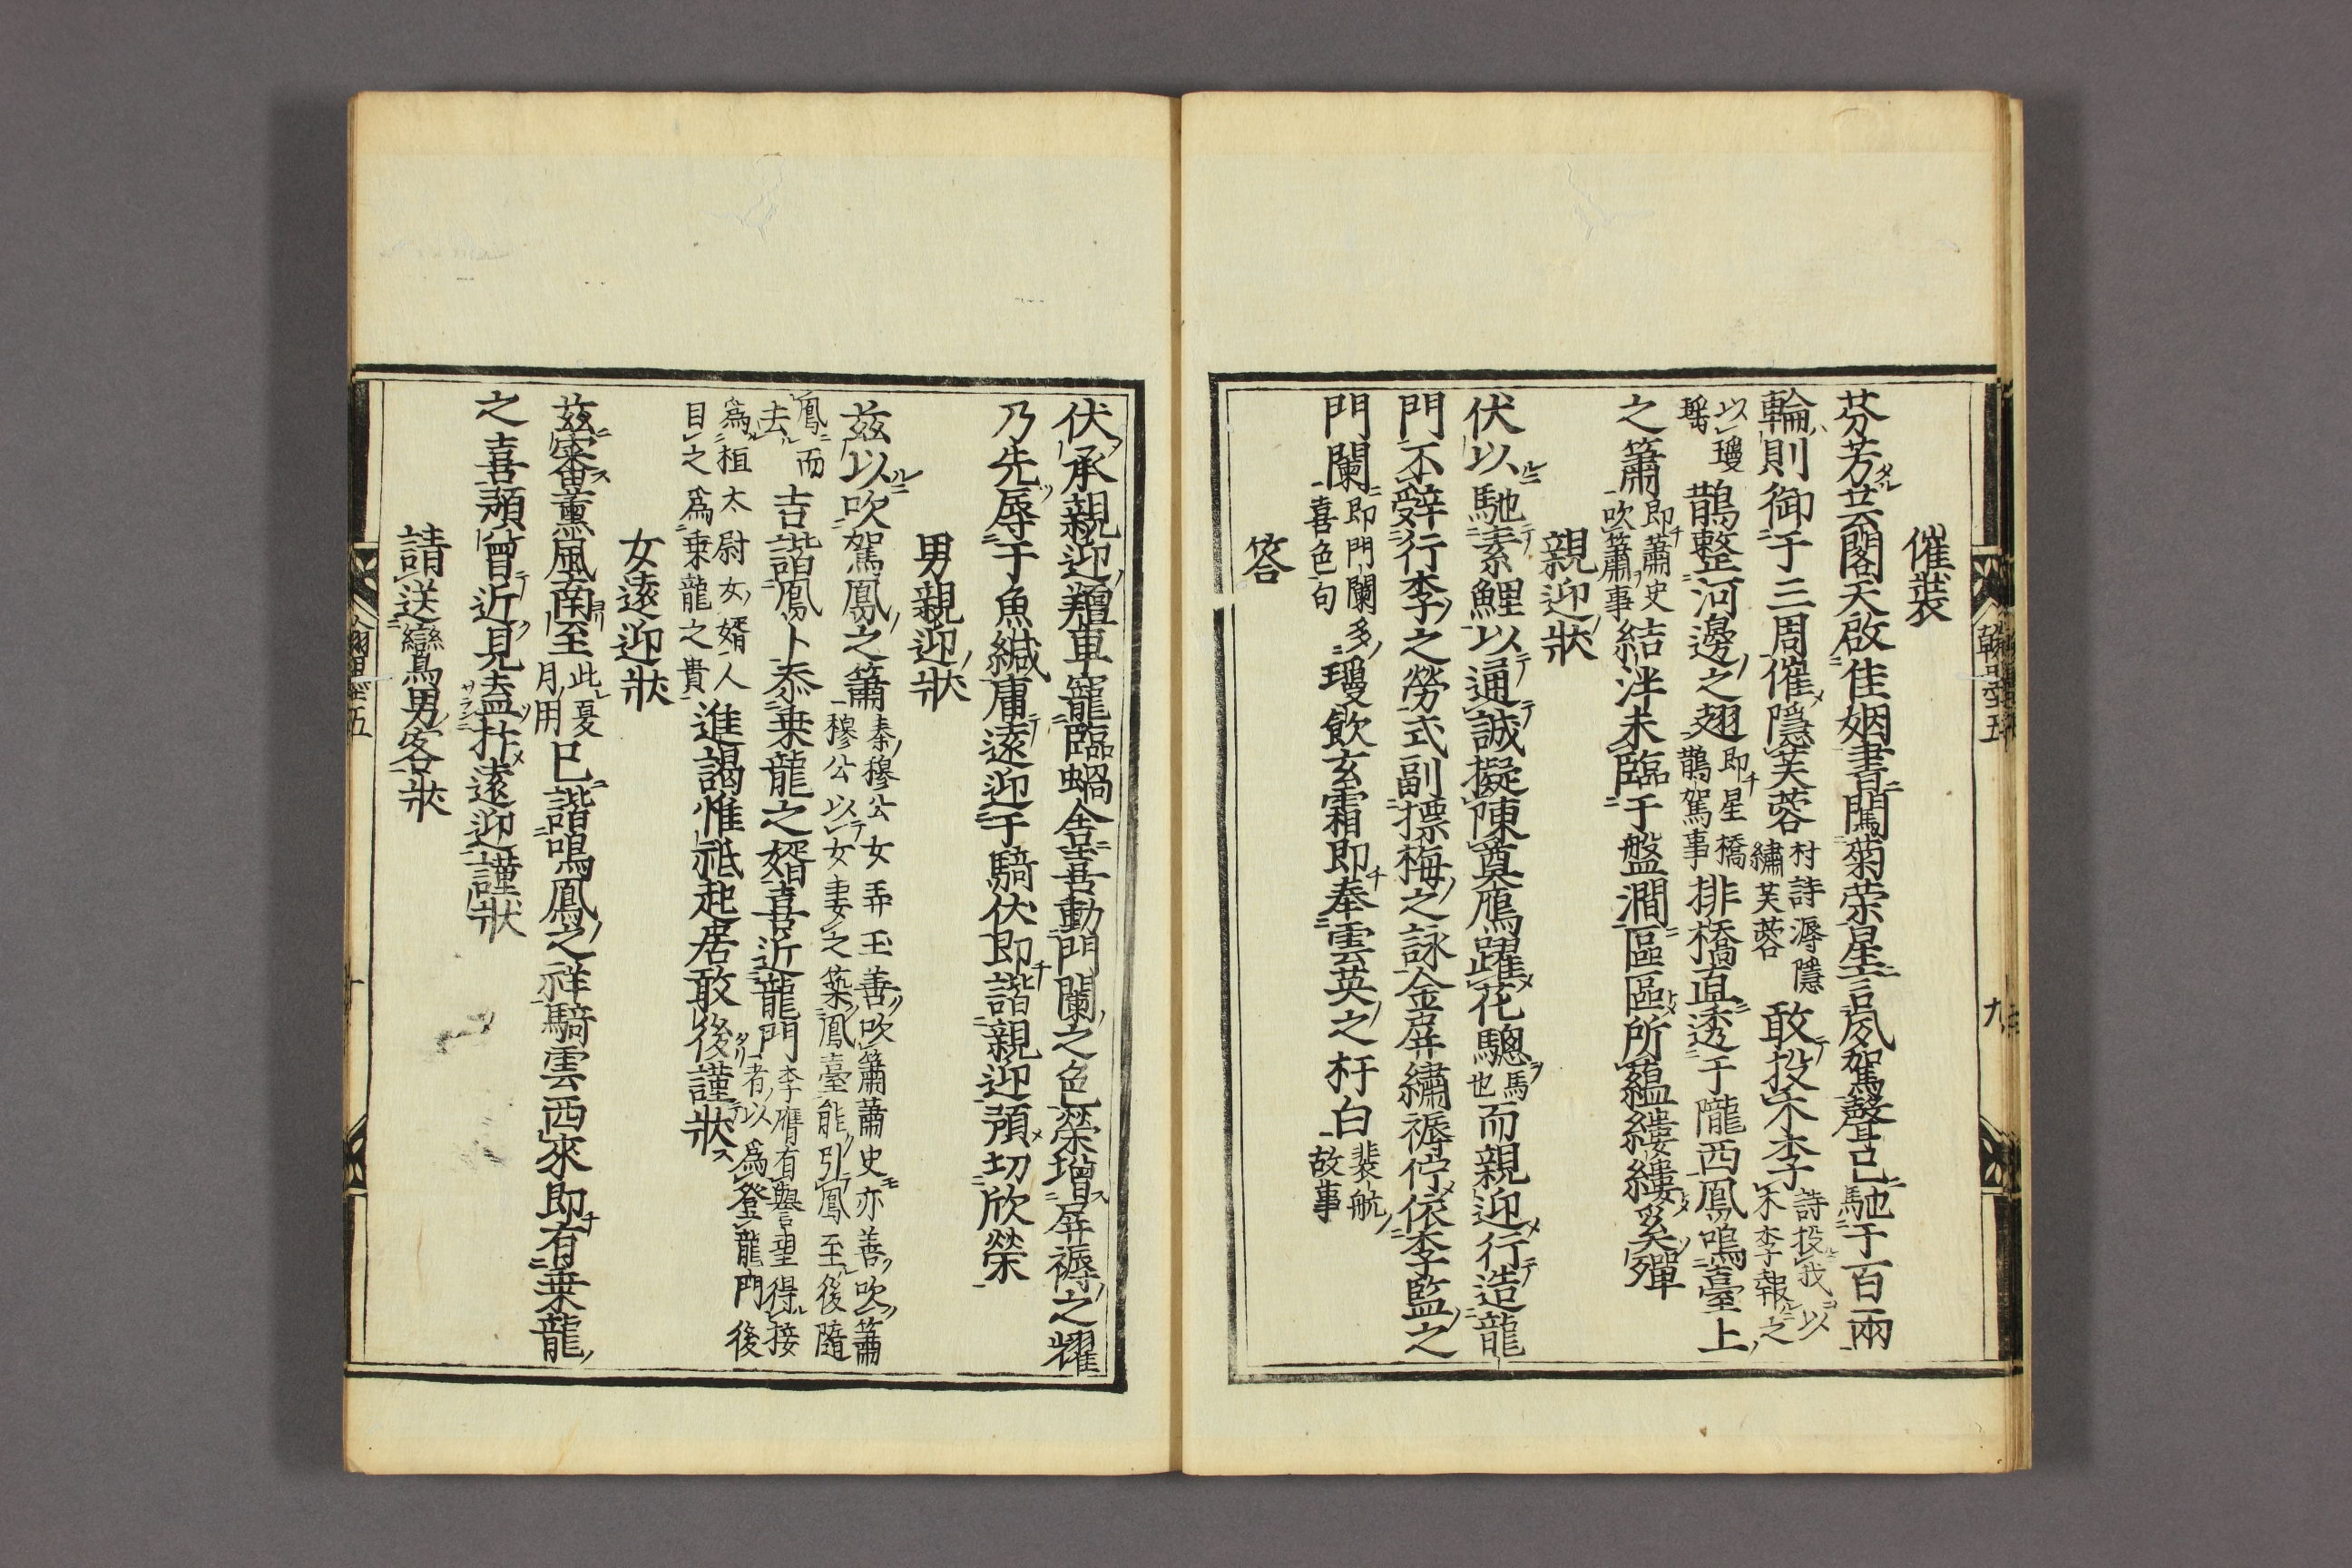 催裝
芬芳芸閣天啟佳姻書闖菊荣星言夙駕聲已馳于百兩
輪則御于三周催隱芙蓉村詩溽隱繡芙蓉敢投木李詩投我以木李報之
以瓊瑶鵲整河邊之翅即星橋鵲駕事排橋直透于隴西鳳鳴臺上
之簫即蕭史吹簫事結泮未臨于盤澗區區所蘊縷縷奚殫
親迎狀
伏以馳素鯉以通誠擬陳奠鴈躍花驄馬也而親迎行造龍
門不辭行李之勞式副摽梅之詠金屏繡褥佇依李監之
門闌即門闌多喜色句瓊飲玄霜即奉雲英之杵臼裴航故事
答
伏承親迎羶車寵臨蝸舍喜動門闌之色榮增屏褥之耀
乃先辱于魚緘庸遠迎于騎伏即諧親迎預切欣榮
男親迎狀
茲以吹駕鳳之簫秦穆公女弄玉善吹簫蕭史亦善吹簫穆公以女妻之築鳳臺能引鳳至後隨
鳳而去吉諧鳳卜忝乘龍之婿喜近龍門李膺有譽望得接者以為登龍門後
為桓太尉女婿人目之為乘龍之貴進謁惟祗起居敢後謹狀
女遠迎狀
茲審薰風南至此夏月用已諧鳴鳳之祥騎雲西來即有乗龍
之喜頻曾近見盍拤遠迎謹狀
請送鸞男客狀
翰墨五
九
翰墨五
十